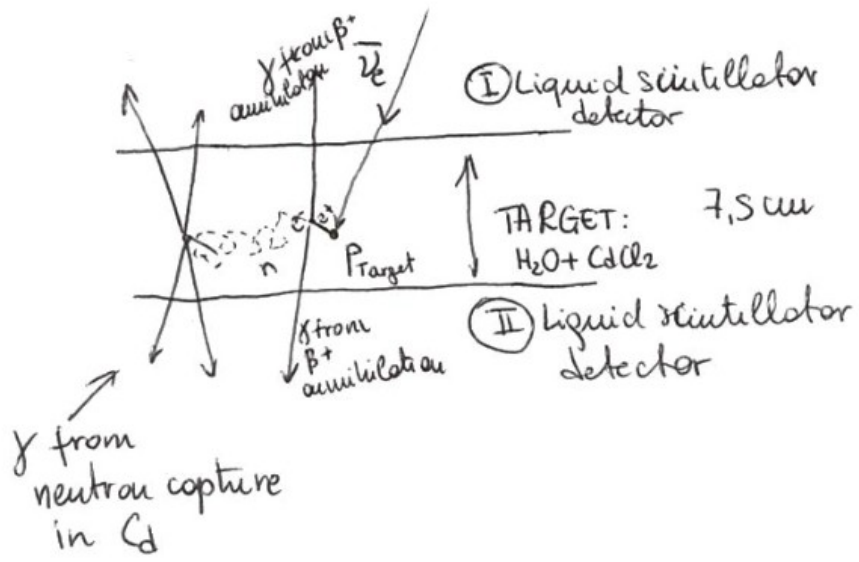 γ from β+
annihilation
ν̅e
I Liquid scintillator
detector
TARGET: 7,5 cm
H2O + CdCl2
e- e+
n
PTarget
γ from
β+
annihilation
II Liquid scintillator
detector
γ from
neutron capture
in Cd